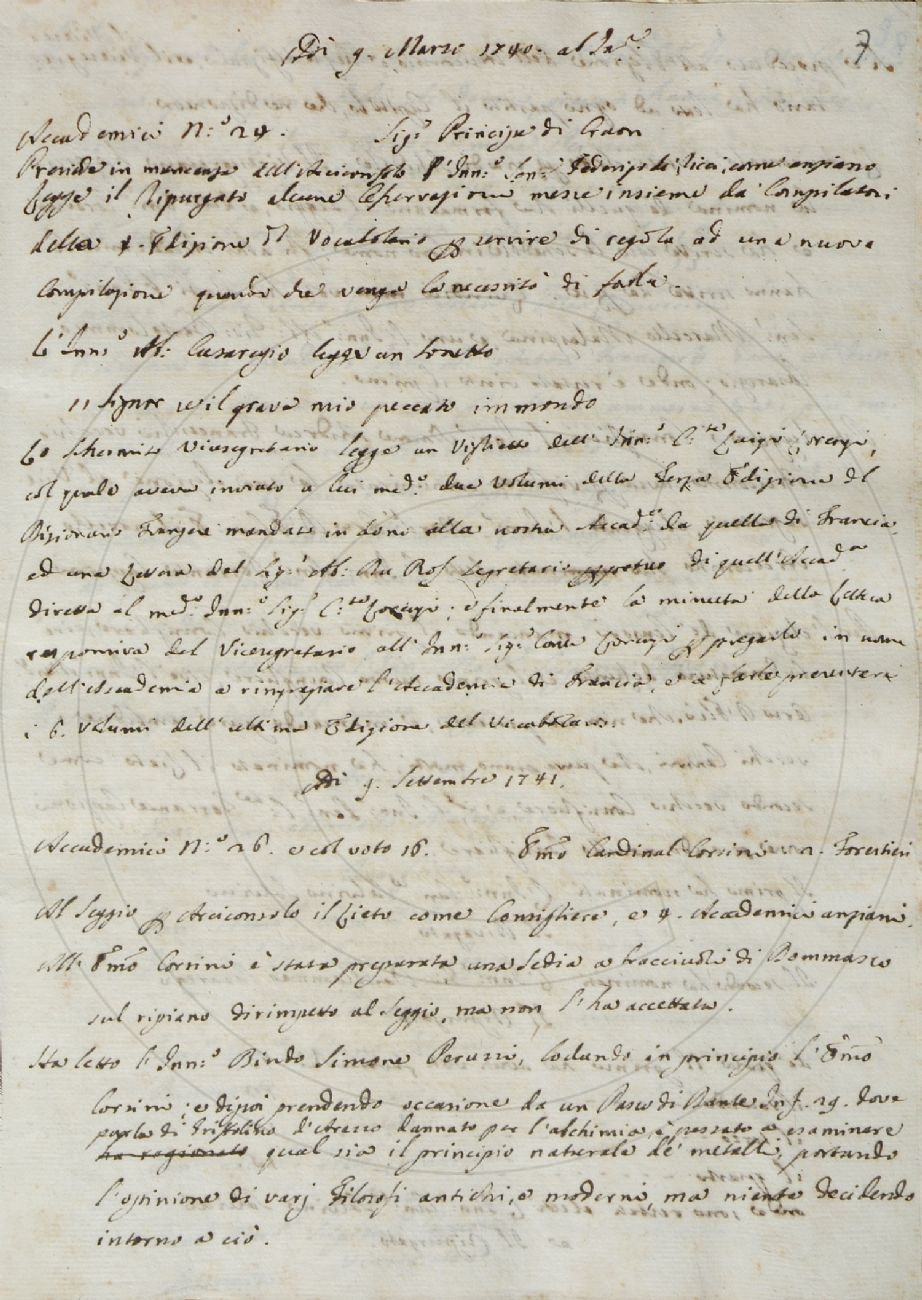 Adi 9. Marzo 1740. al Inc.e
7
Accademici N.o 24. Sig.e Principe di Craon
Presiede in mancanza dell'Arciconsolo l'Inn.o Sen.e Federigo de' Ricci, come anziano
Legge il Ripurgato alcune Osservazioni messe insieme da' Compilatori
della 4. Edizione del Vocabolario per servire di regola ad una nuova
Compilazione quando che venga la necessità di farla.
L'Inn.o Ab: Casaregio legge un Sonetto
Signor se il grave mio peccato immondo
Lo Schermito Vicesegretario legge un Viglietto dell'Inn.o C.te Luigi Lorenzi,
col quale aveva inviato a lui med.o due volumi della Terza Edizione del
Dizionario Franzese mandato in dono alla nostra Accad.a da quella di Francia,
ed una Lettera del Sig.e Ab: Segretario perpetuo di quell'Accad.a
diretta al med.o Inn.o Sig.e C.te Lorenzi; e finalmente la minuta della Lettera
responsiva del Vicesegretario all'Inn.o Sig.e Conte Lorenzi per pregarlo in nome
dell'Accademia a ringraziare l'Accademia di Francia, e a farle presentare
i 6. Volumi dell'ultima Edizione del Vocabolario.
Adi 9. Settembre 1741.
Accademici N.o 26. e col voto 16. Emo Cardinal Corsini 2. Forestieri
Al Seggio per Arciconsolo il Lieto come Consigliere, e 4. Accademici anziani.
All'Emo Corsini è stata preparata una Sedia a bracciuoli di Dommasco
sul ripiano dirimpetto al Seggio, ma non l'ha accettata.
Ha letto l'Inn.o Bindo Simone Peruzzi, lodando in principio l'Emo
Corsini; e dipoi prendendo occasione da un Passo di Dante Inf. 29. dove
parla di Griffolino d'Arezzo dannato per l'alchimia, è passato a esaminare
ha ragionato qual sia il principio naturale de' metalli, portando
l'opinione di varj Filosofi antichi, e moderni, ma niente decidendo
intorno a ciò.